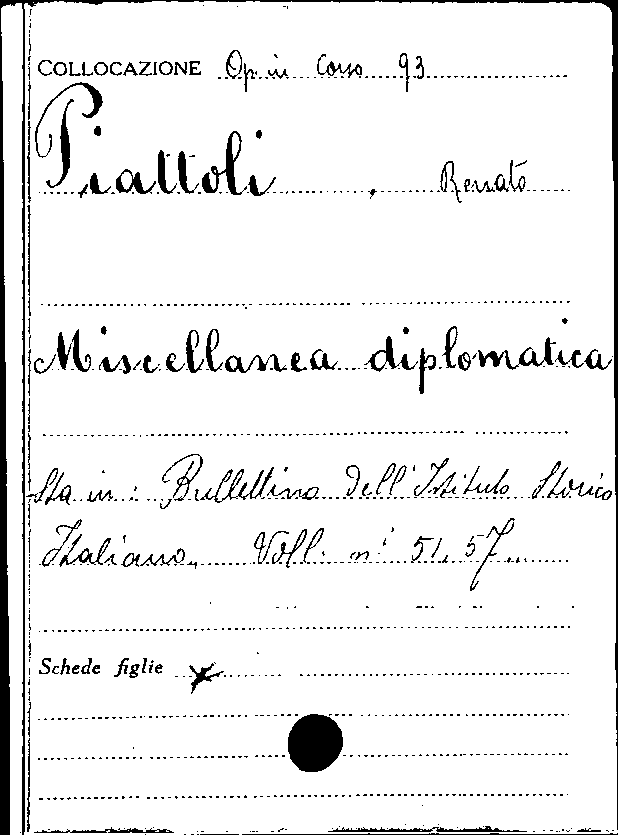 COLLOCAZIONE Op. in Corso 93
Piattoli, Renato
Miscellanea diplomatica
Sta in: Bullettino dell'Istituto Storico
Italiano. Voll. ni 51, 57.
Schede figlie x